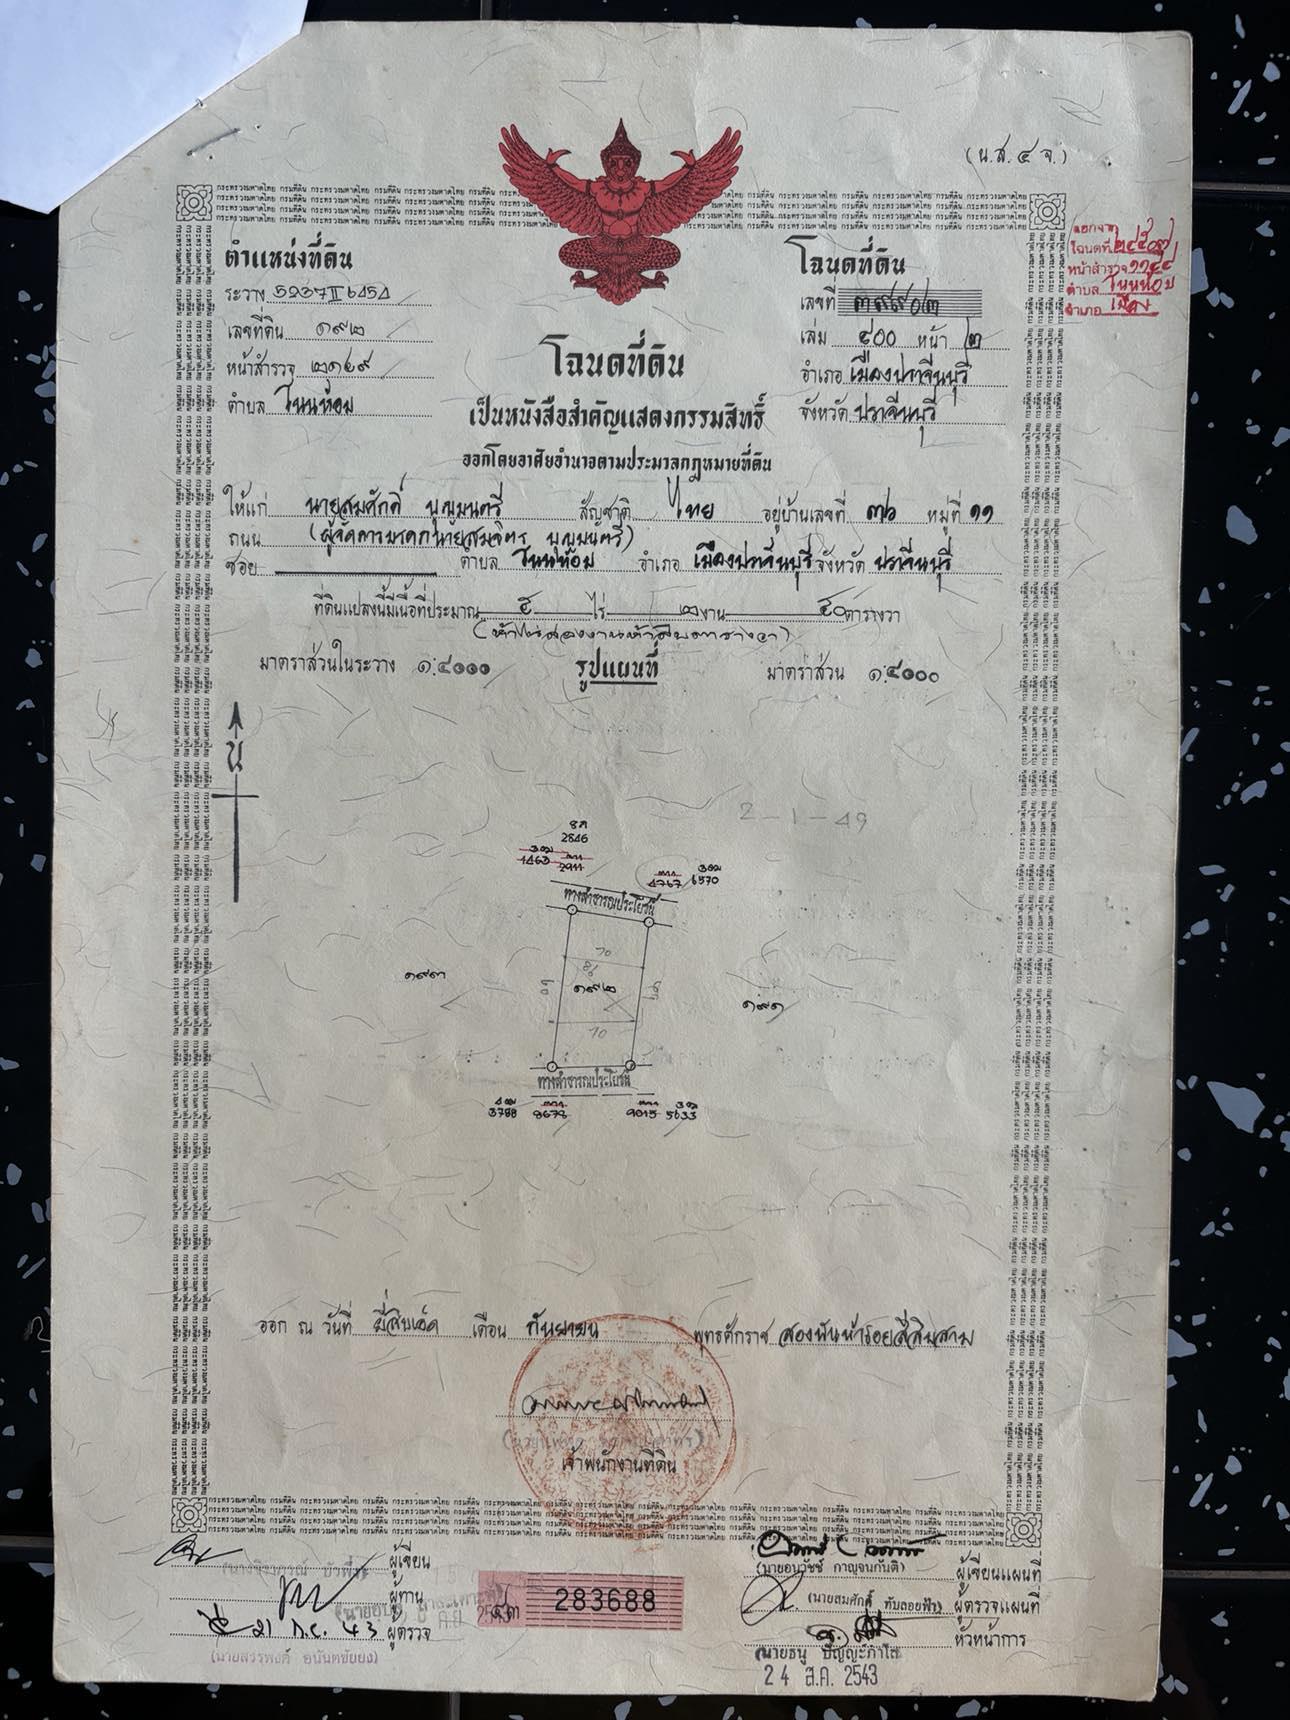 (น.ส. ๔ จ.)
ตำแหน่งที่ดิน
ระวาง 5237 II 6454
เลขที่ดิน ๑๙๒
หน้าสำรวจ
ตำบล โนนห้อม
โฉนดที่ดิน
เลขที่
เล่ม ๔๐๐ หน้า ๒
อำเภอ เมืองปราจีนบุรี
จังหวัด ปราจีนบุรี
แยกจาก
โฉนดที่
หน้าสำรวจ
ตำบล โนนห้อม
อำเภอ เมือง
โฉนดที่ดิน
เป็นหนังสือสำคัญแสดงกรรมสิทธิ์
ออกโดยอาศัยอำนาจตามประมวลกฎหมายที่ดิน
ให้แก่ นายสมศักดิ์ บุญมนตรี สัญชาติ ไทย อยู่บ้านเลขที่ ๗๖ หมู่ที่ ๑๑
ถนน (ผู้จัดการมรดกนายสมจิตร บุญมนตรี)
ซอย ตำบล โนนห้อม อำเภอ เมืองปราจีนบุรี จังหวัด ปราจีนบุรี
ที่ดินแปลงนี้มีเนื้อที่ประมาณ ๕ ไร่ ๒ งาน ๕๐ ตารางวา
(ห้าไร่สองงานห้าสิบตารางวา)
มาตราส่วนในระวาง ๑:๔๐๐๐ รูปแผนที่ มาตราส่วน ๑:๔๐๐๐
น
2-1-49
2846
1463 2911
4767 6570
ทางสาธารณประโยชน์
70
๑๙๓ ๑๙๒ ๑๙๑
70
ทางสาธารณประโยชน์
3788 8678 9015 5633
ออก ณ วันที่ ยี่สิบเอ็ด เดือน กันยายน พุทธศักราช สองพันห้าร้อยสี่สิบสาม
เจ้าพนักงานที่ดิน
ผู้เขียน
ผู้ทาน
21 ก.ย. 43 ผู้ตรวจ
(นายสรรพงศ์ อนันตชัยยง)
283688
(นายอนุวัชช์ กาญจนกันติ) ผู้เขียนแผนที่
(นายสมศักดิ์ ทับลอยฟ้า) ผู้ตรวจแผนที่
หัวหน้าการ
(นายธนู ปัญญะภาโส)
24 ส.ค. 2543